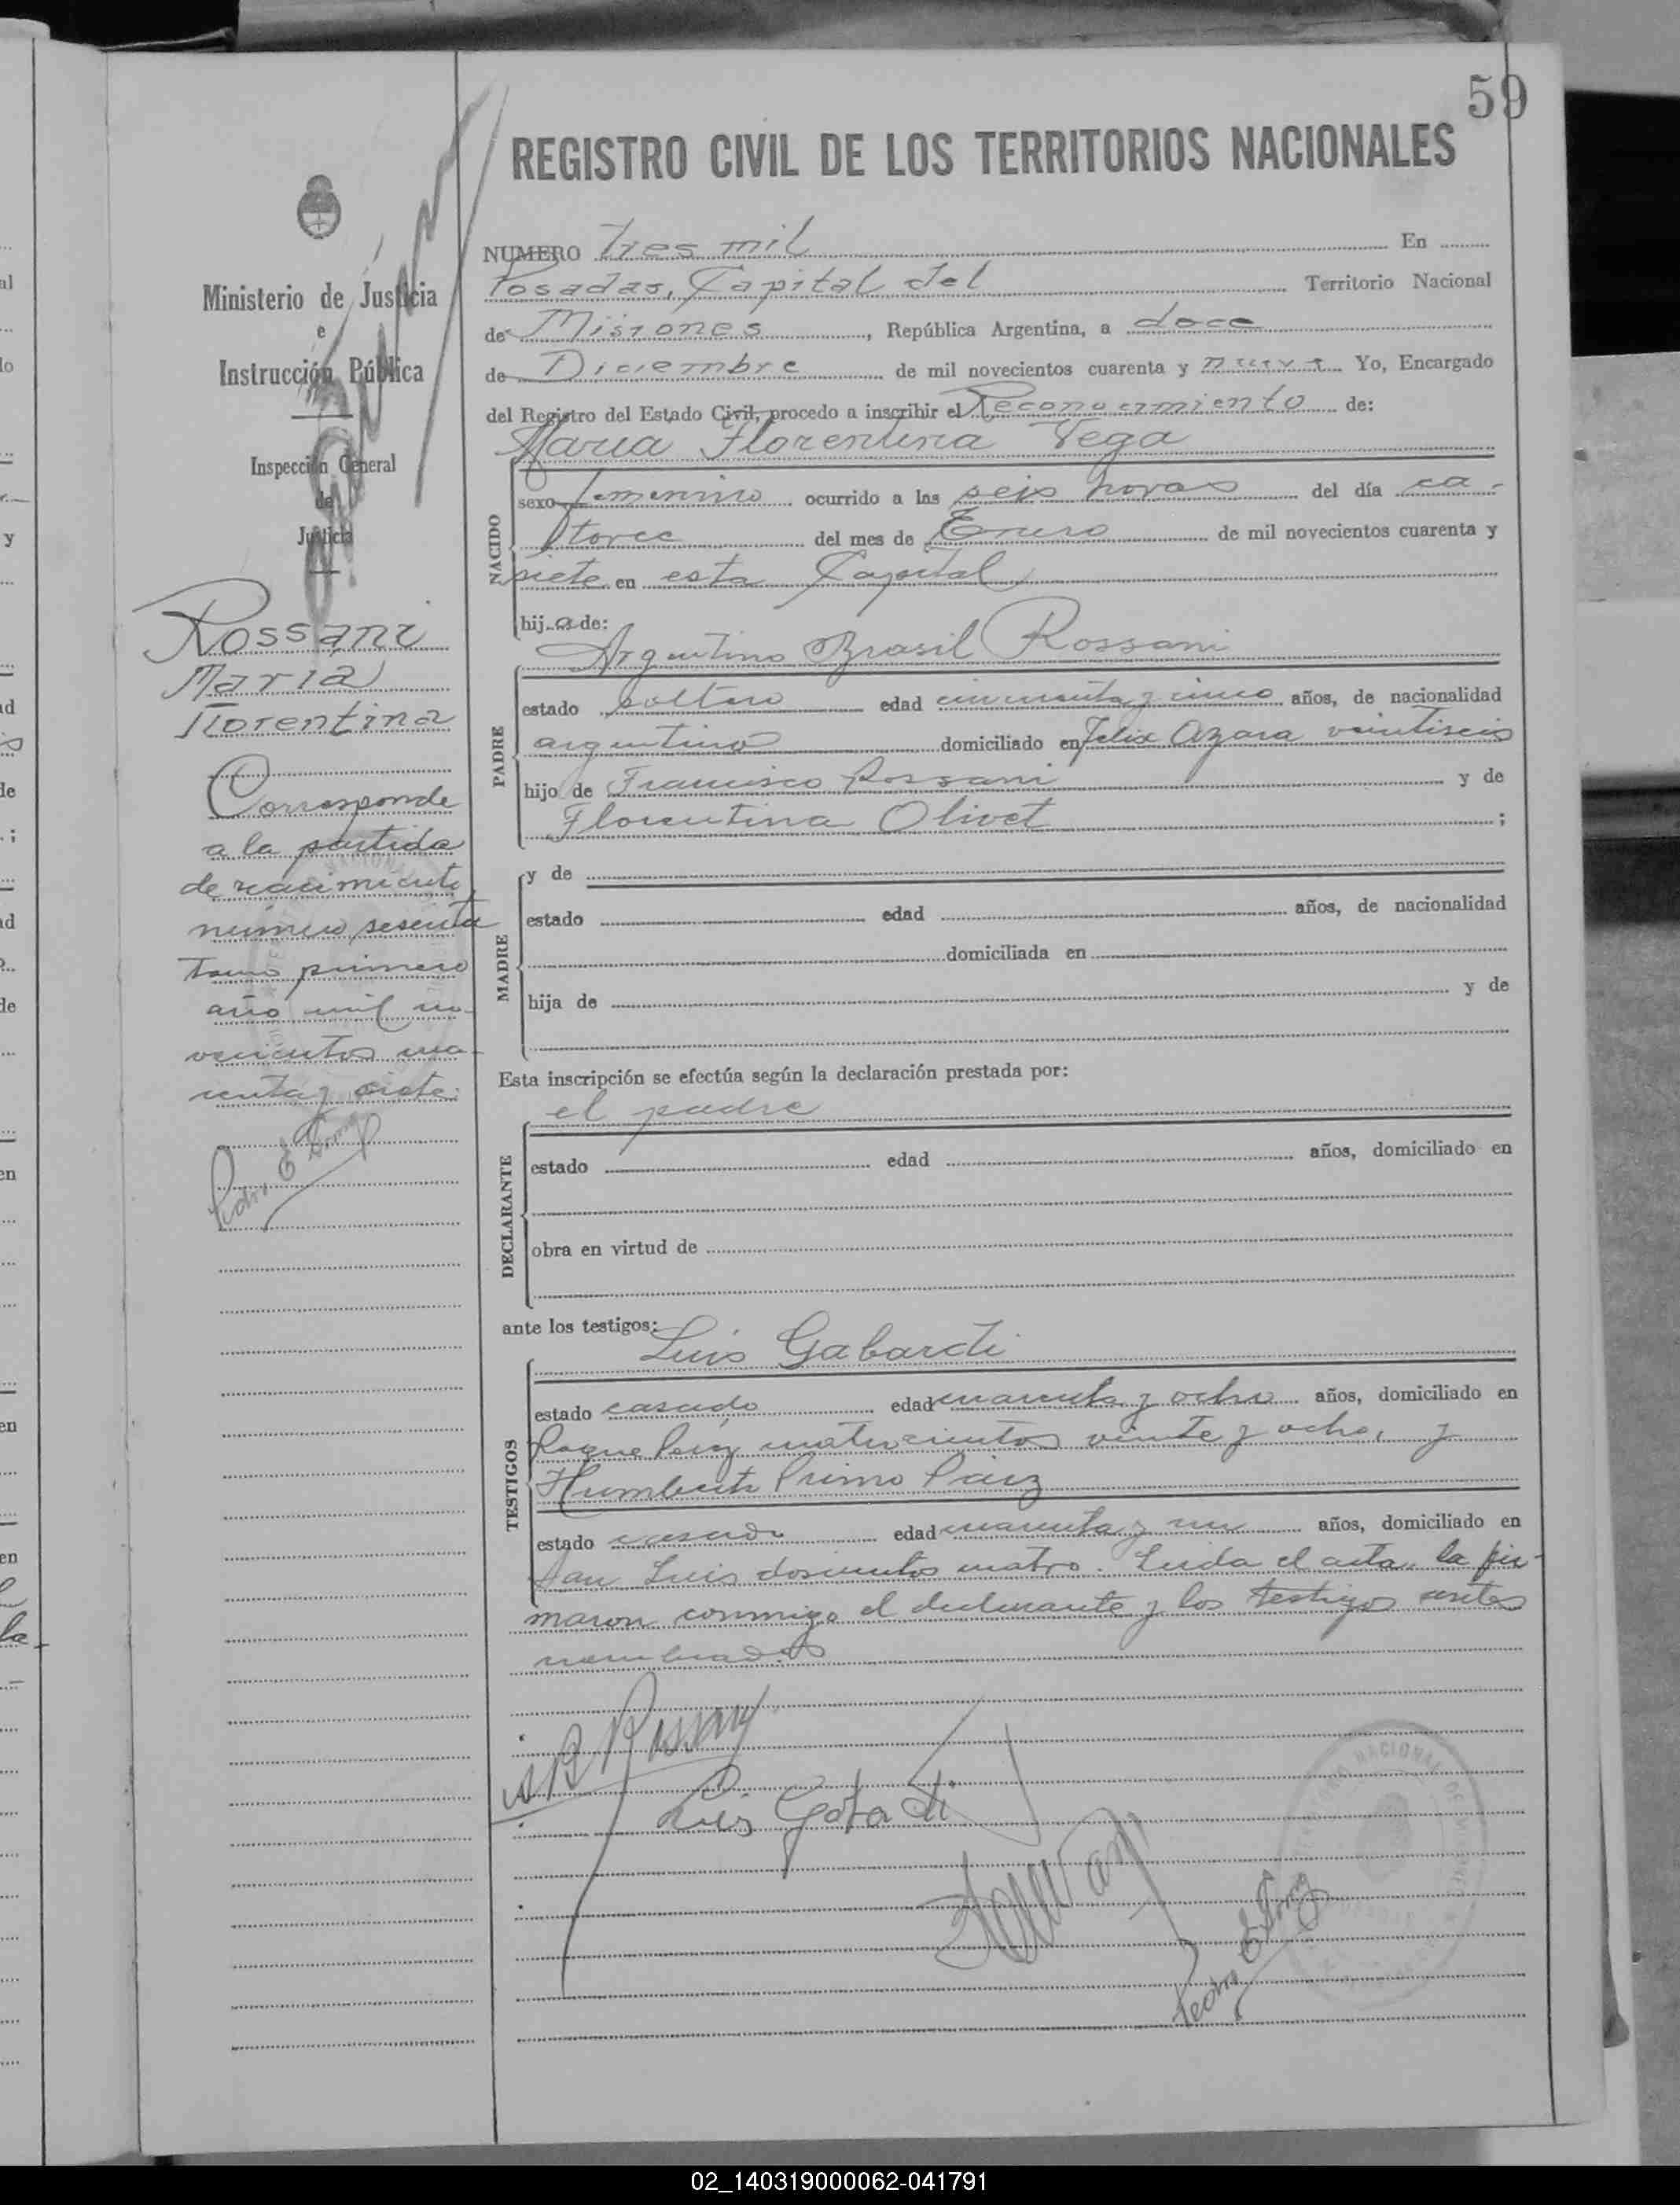 59
REGISTRO CIVIL DE LOS TERRITORIOS NACIONALES
Ministerio de Justicia
e
Instrucción Pública
Inspección General
de
Justicia
Rossani
María
Florentina
Corresponde
a la partida
de nacimiento
número sesenta
Tomo primero
año mil no-
vecientos cua-
renta y siete.
NUMERO Tres mil En
Posadas, Capital del Territorio Nacional
de Misiones, República Argentina, a doce
de Diciembre de mil novecientos cuarenta y nueve Yo, Encargado
del Registro del Estado Civil, procedo a inscribir el Reconocimiento de:
Maria Florentina Vega
NACIDO
sexo femenino ocurrido a las seis horas del día ca-
torce del mes de Enero de mil novecientos cuarenta y
siete en esta Capital
hija de:
Argentino Brasil Rossani
PADRE
estado soltero edad cincuenta y cinco años, de nacionalidad
argentino domiciliado en Felix Azara veintiseis
hijo de Francisco Rossani y de
Florentina Olivet ;
MADRE
y de
estado edad años, de nacionalidad
domiciliada en
hija de y de
Esta inscripción se efectúa según la declaración prestada por:
el padre
DECLARANTE
estado edad años, domiciliado en
obra en virtud de
ante los testigos:
Luis Gabardi
TESTIGOS
estado casado edad cuarenta y ocho años, domiciliado en
Roque Perez cuatrocientos veinte y ocho, y
Humberto Primo Paez
estado casado edad cuarenta y un años, domiciliado en
San Luis doscientos cuatro. Leida el acta, la fir-
maron conmigo el declarante y los testigos antes
nombrados
02_140319000062-041791